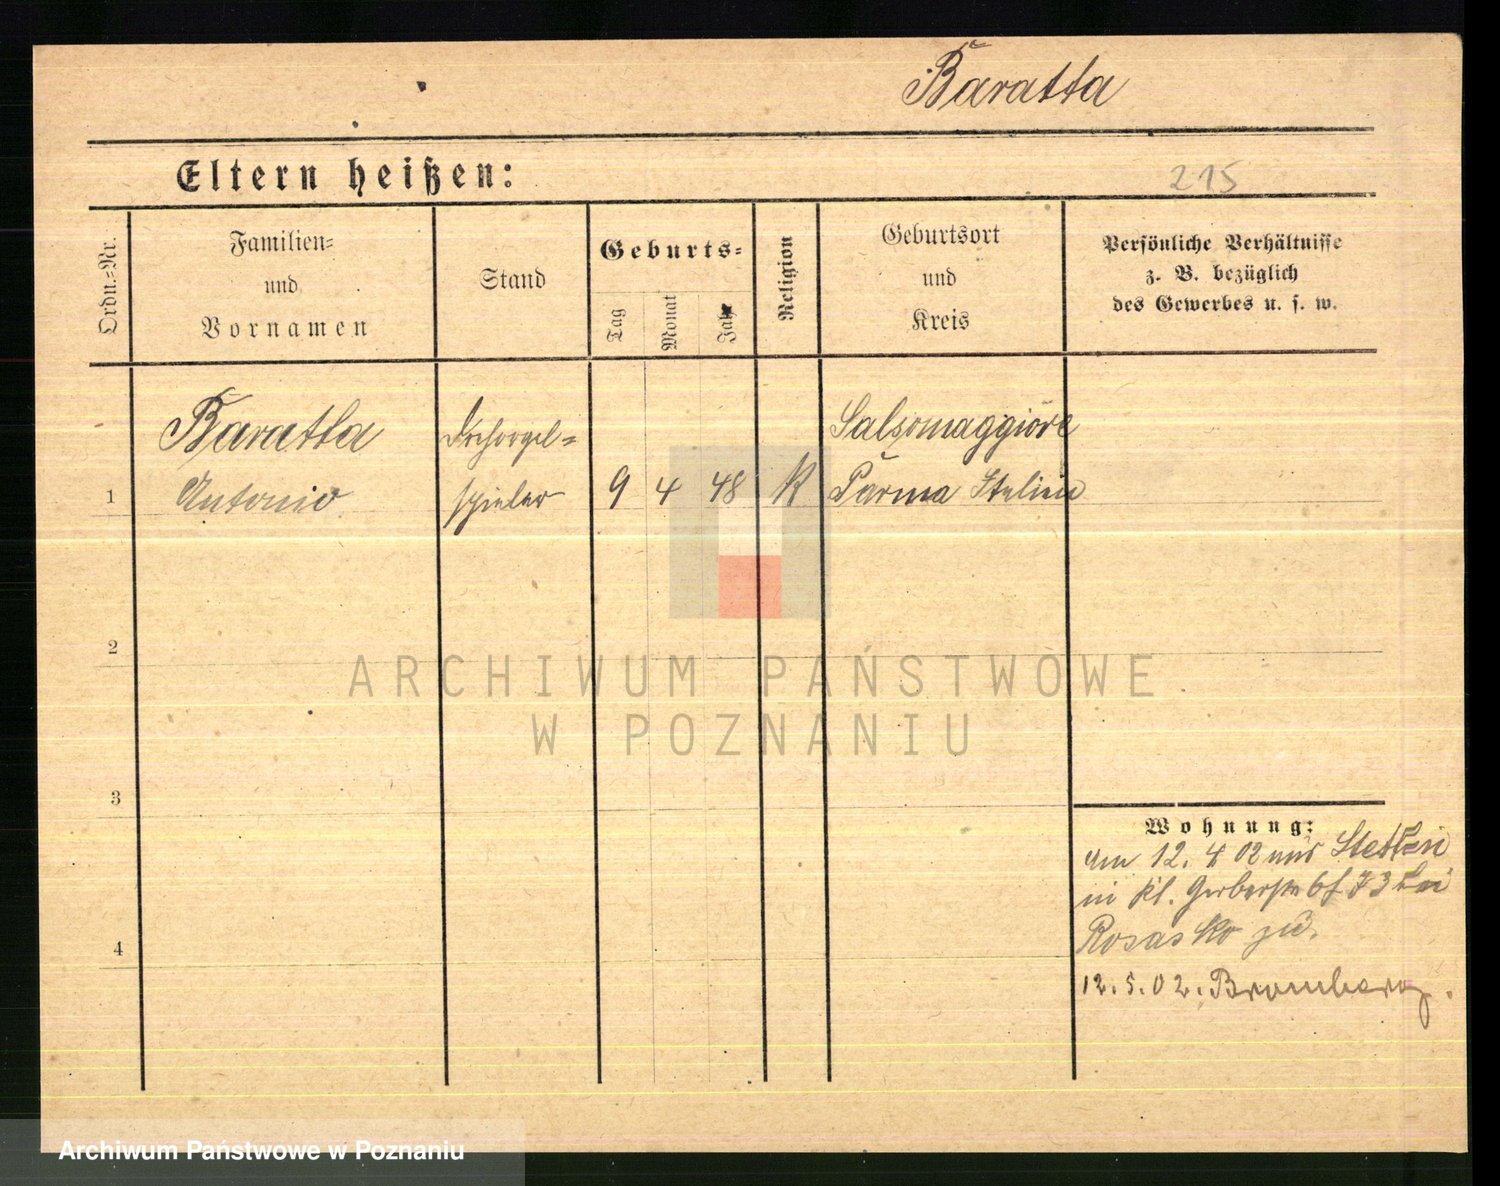 Baratta
Eltern heißen:
215
Ordn.-Nr.
Familien-
und
Vornamen
Stand
Geburts-
Tag
Monat
Jahr
Religion
Geburtsort
und
Kreis
Persönliche Verhältnisse
z. B. bezüglich
des Gewerbes u. s. w.
Baratta
Antonio
Drehorgel=
spieler
1
9 4 48
K
Salsomaggiore
Parma Italien
2
3
4
ARCHIWUM PAŃSTWOWE
W POZNANIU
Wohnung:
Am 12. 4 02 aus Stettin
in Kl. Gerberstr 6 73 bei
Rosasko zu.
12. 5. 02. Bromberg.
Archiwum Państwowe w Poznaniu